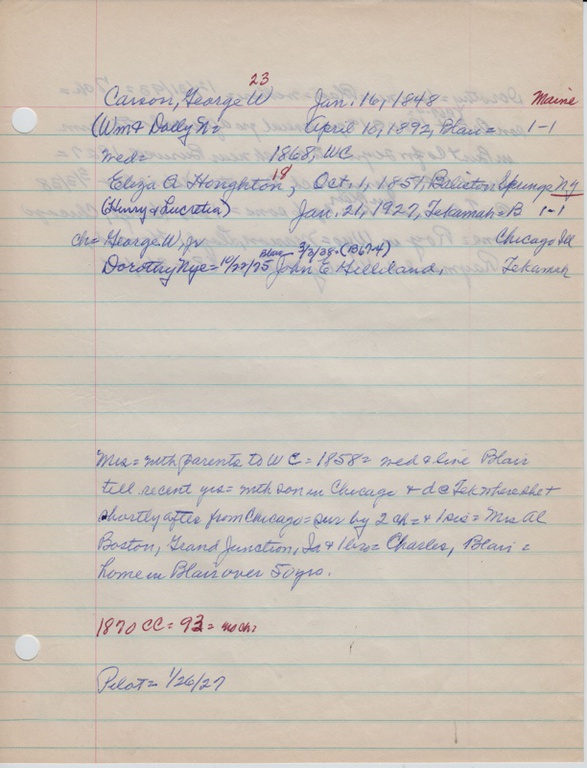 23
Carson, George W Jan. 16, 1848 Maine
(Wm & Dolly N= April 10, 1892, Blair= 1-1
wed= 1868, WC
19
Eliza A Houghton, Oct. 1, 1851, Balleton Springs NY
(Henry & Lucretia) Jan. 21, 1927, Tekamah=B 1-1
ch= George W, Jr Chicago Ill
Dorothy Nye= 10/22/75 Blair 3/3/38. (B67-4) John E Hilleland, Tekamah
Mrs= with parents to WC= 1858= wed & live Blair
till recent yrs= with son in Chicago & d@Tek where she +
shortly after from Chicago= sur by 2 ch= & 1 sis= Mrs Al
Boston, Grand Junction, Ia & 1 bro= Charles, Blair=
home in Blair over 50 yrs.
1870 CC= 93= no ch:
Pilot= 1/26/27